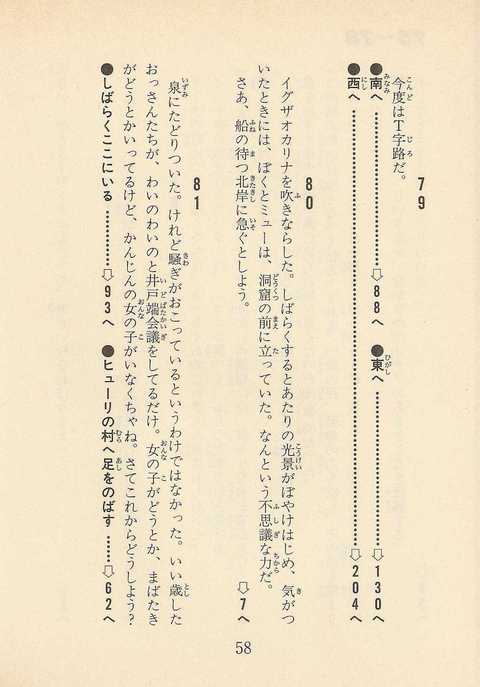 79
今度はT字路だ。
●南へ……⇨88へ ●東へ……⇨130へ
●西へ……⇨204へ
80
イグザオカリナを吹きならした。しばらくするとあたりの光景がぼやけはじめ、気がつ
いたときには、ぼくとミューは、洞窟の前に立っていた。なんという不思議な力だ。
さあ、船の待つ北岸に急ぐとしよう。 ⇨7へ
81
泉にたどりついた。けれど騒ぎがおこっているというわけではなかった。いい歳した
おっさんたちが、わいのわいのと井戸端会議をしてるだけ。女の子がどうとか、まばたき
がどうとかいってるけど、かんじんの女の子がいなくちゃね。さてこれからどうしよう?
●しばらくここにいる……⇨93へ ●ヒューリの村へ足をのばす……⇨62へ
58